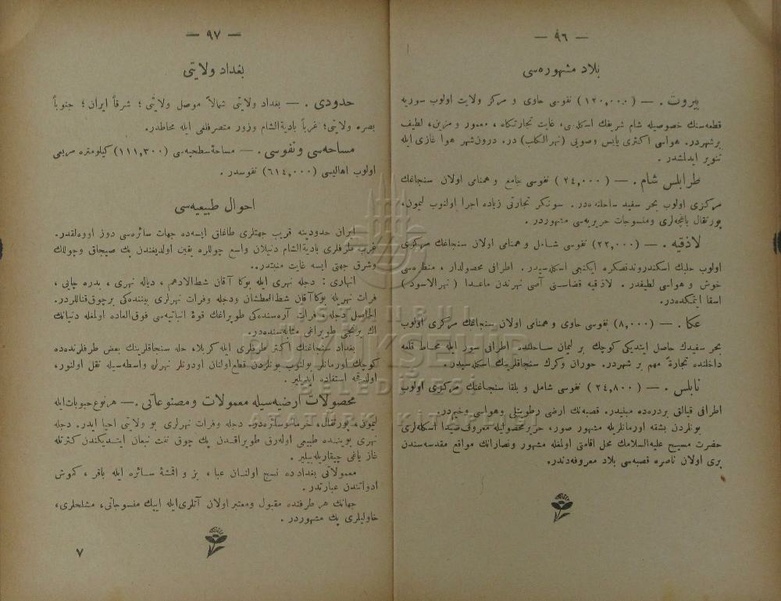 — ٩٦ —
بلاد مشهوره‌سی
بیروت . — (١٢٠,٠٠٠) نفوسی حاوی و مرکز ولایت اولوب سوریه
قطعه‌سنك خصوصیله شام شریفك اسکله‌سی، غایت تجارتکاه ، معمور و مزین، لطیف
برشهردر. هواسی اکثری یابس وصویی (نهرالکلب) در. درون‌شهر هوا غازی ایله
تنویر ایدلشدر.
طرابلس شام . — (٢٤,٠٠٠) نفوسی جامع و همنامی اولان سنجاغك
مرکزی اولوب بحر سفید ساحلنده‌در. سونکر تجارتی زیاده اجرا اولنوب لیمون،
پورتقال باغچه‌لری ومنسوجات حریریه‌سی مشهوردر.
لاذقیه . — (٢٢,٠٠٠) نفوسی شامل و همنامی اولان سنجاغك مرکزی
اولوب حلبك اسکندروندنصکره ایکنجی اسکله‌سیدر. اطرافی محصولدار ، منظره‌سی
خوش و هواسی لطیفدر. لاذقیه قضاسنی آصی نهرندن ماعدا (نهرالاسود)
اسقا ایتمکده‌در.
عکا . — (٨,٠٠٠) نفوسی حاوی و همنامی اولان سنجاغك مرکزی اولوب
بحر سفیدك حاصل ایتدیکی کوچك بر لیمان ساحلنده اطرافی سور ایله محاط قلعه
داخلنده تجارةً مهم بر شهردر. حوران وکرك سنجاقلرینك اسکله‌سیدر.
نابلس . — (٢٤,٨٠٠) نفوسی شامل و بلقا سنجاغنك مرکزی اولوب
اطرافی قپالی بردره‌ده مبنیدر. قصبه‌نك ارضی رطوبتلی وهواسی وخیمدر.
بونلردن بشقه اورمانلریله مشهور صور، حریرمحصولیله معروف صیدا اسکله‌لری
حضرت مسیح علیه‌السلامك محل اقامتی اولمغله مشهور ونصارانك مواقع مقدسه‌سندن
بری اولان ناصره قصبه‌سی بلاد معروفه‌دندر.
— ٩٧ —
بغداد ولایتی
حدودی . — بغداد ولایتی شمالاً موصل ولایتی؛ شرقاً ایران؛ جنوباً
بصره ولایتی؛ غرباً بادیةالشام وزور متصرفلغی ایله محاطدر.
مساحه‌سی ونفوسی . — مساحهٔ سطحیه‌سی (١١١,٣٠٠) کیلومتره مربعی
اولوب اهالیسی (٦١٤,٠٠٠) نفوسدر.
احوال طبیعیه‌سی
ایران حدودینه قریب جهتلری طاغلق ایسه‌ده جهات سائره‌سی دوز اووه‌لقدر.
غرب طرفلری بادیةالشام دنیلان واسع چوللره یقین اولدیغندن پك صیجاق وچوللك
وشرق جهتی ایسه غایت منبتدر.
انهاری : دجله نهری ایله بوکا آقان شط‌الادهم ، دیاله نهری ، بدره چایی ،
فرات نهریله بوکا آقان شط‌العطشان ودجله وفرات نهرلری بیننده‌کی برچوق قناللردر.
الحاصل دجله و فرات آره‌سنده‌کی طوپراغك قوهٔ انباتیه‌سی فوق‌العاده اولمغله دنیانك
اك برکتلی طوپراغی مثابه‌سنده‌در.
بغداد سنجاغنك اکثر طرفلری ایله کربلا، حله سنجاقلرینك بعض طرفلرنده‌ده
کوچك اورمانلر بولنوب بونلردن قطع اولنان اودونلر نهرلر واسطه‌سیله نقل اولنور،
اولیوجهله استفاده ایدیلیر.
محصولات ارضیه‌سیله معمولات و مصنوعاتی . — هرنوع حبوبات ایله
لیمون، پورتقال، خرما وسائره‌در. دجله وفرات نهرلری بو ولایتی احیا ایدر. دجله
نهری بوینده طبیعی اوله‌رق طوپراقدن پك چوق نفت نبعان ایتدیکندن کثرتله
غاز یاغی چیقاریله‌بیلیر.
معمولاتی بغدادده نسج اولنان عبا ، بز و اقمشهٔ سائره ایله باقر ، کموش
ادواتندن عبارتدر.
جهانك هر طرفنده مقبول ومعتبر اولان آتلری ایله ایپك منسوجاتی ، مشلحلری،
خاولیلری پك مشهوردر.
٧
İSTANBUL
BÜYÜKŞEHİR
BELEDİYESİ
ATATÜRK KİTAPLIĞI